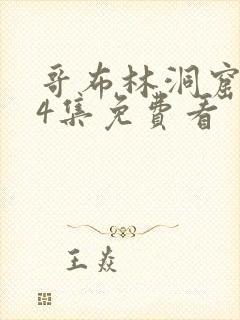 哥布林洞窟
4集免費看
王焱